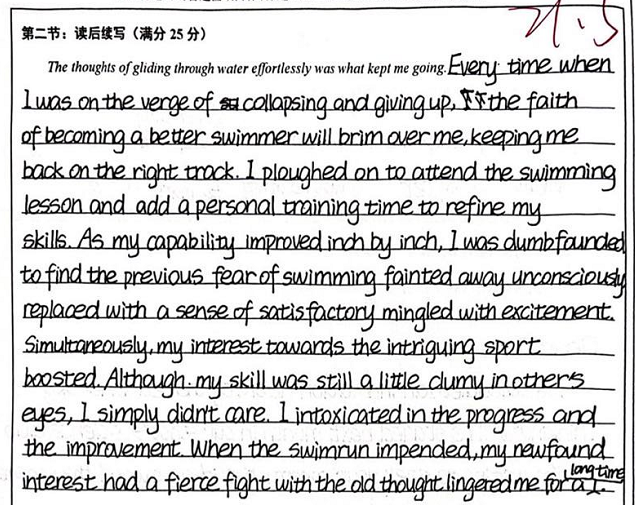 21.5
第二节：读后续写（满分 25 分）
The thoughts of gliding through water effortlessly was what kept me going. Every time when
I was on the verge of collapsing and giving up, the faith
of becoming a better swimmer will brim over me, keeping me
back on the right track. I ploughed on to attend the swimming
lesson and add a personal training time to refine my
skills. As my capability improved inch by inch, I was dumbfounded
to find the previous fear of swimming fainted away unconsciously
replaced with a sense of satisfactory mingled with excitement.
Simultaneously, my interest towards the intriguing sport
boosted. Although my skill was still a little clumy in other's
eyes, I simply didn't care. I intoxicated in the progress and
the improvement. When the swimrun impended, my newfound
interest had a fierce fight with the old thought lingered me for a long time.